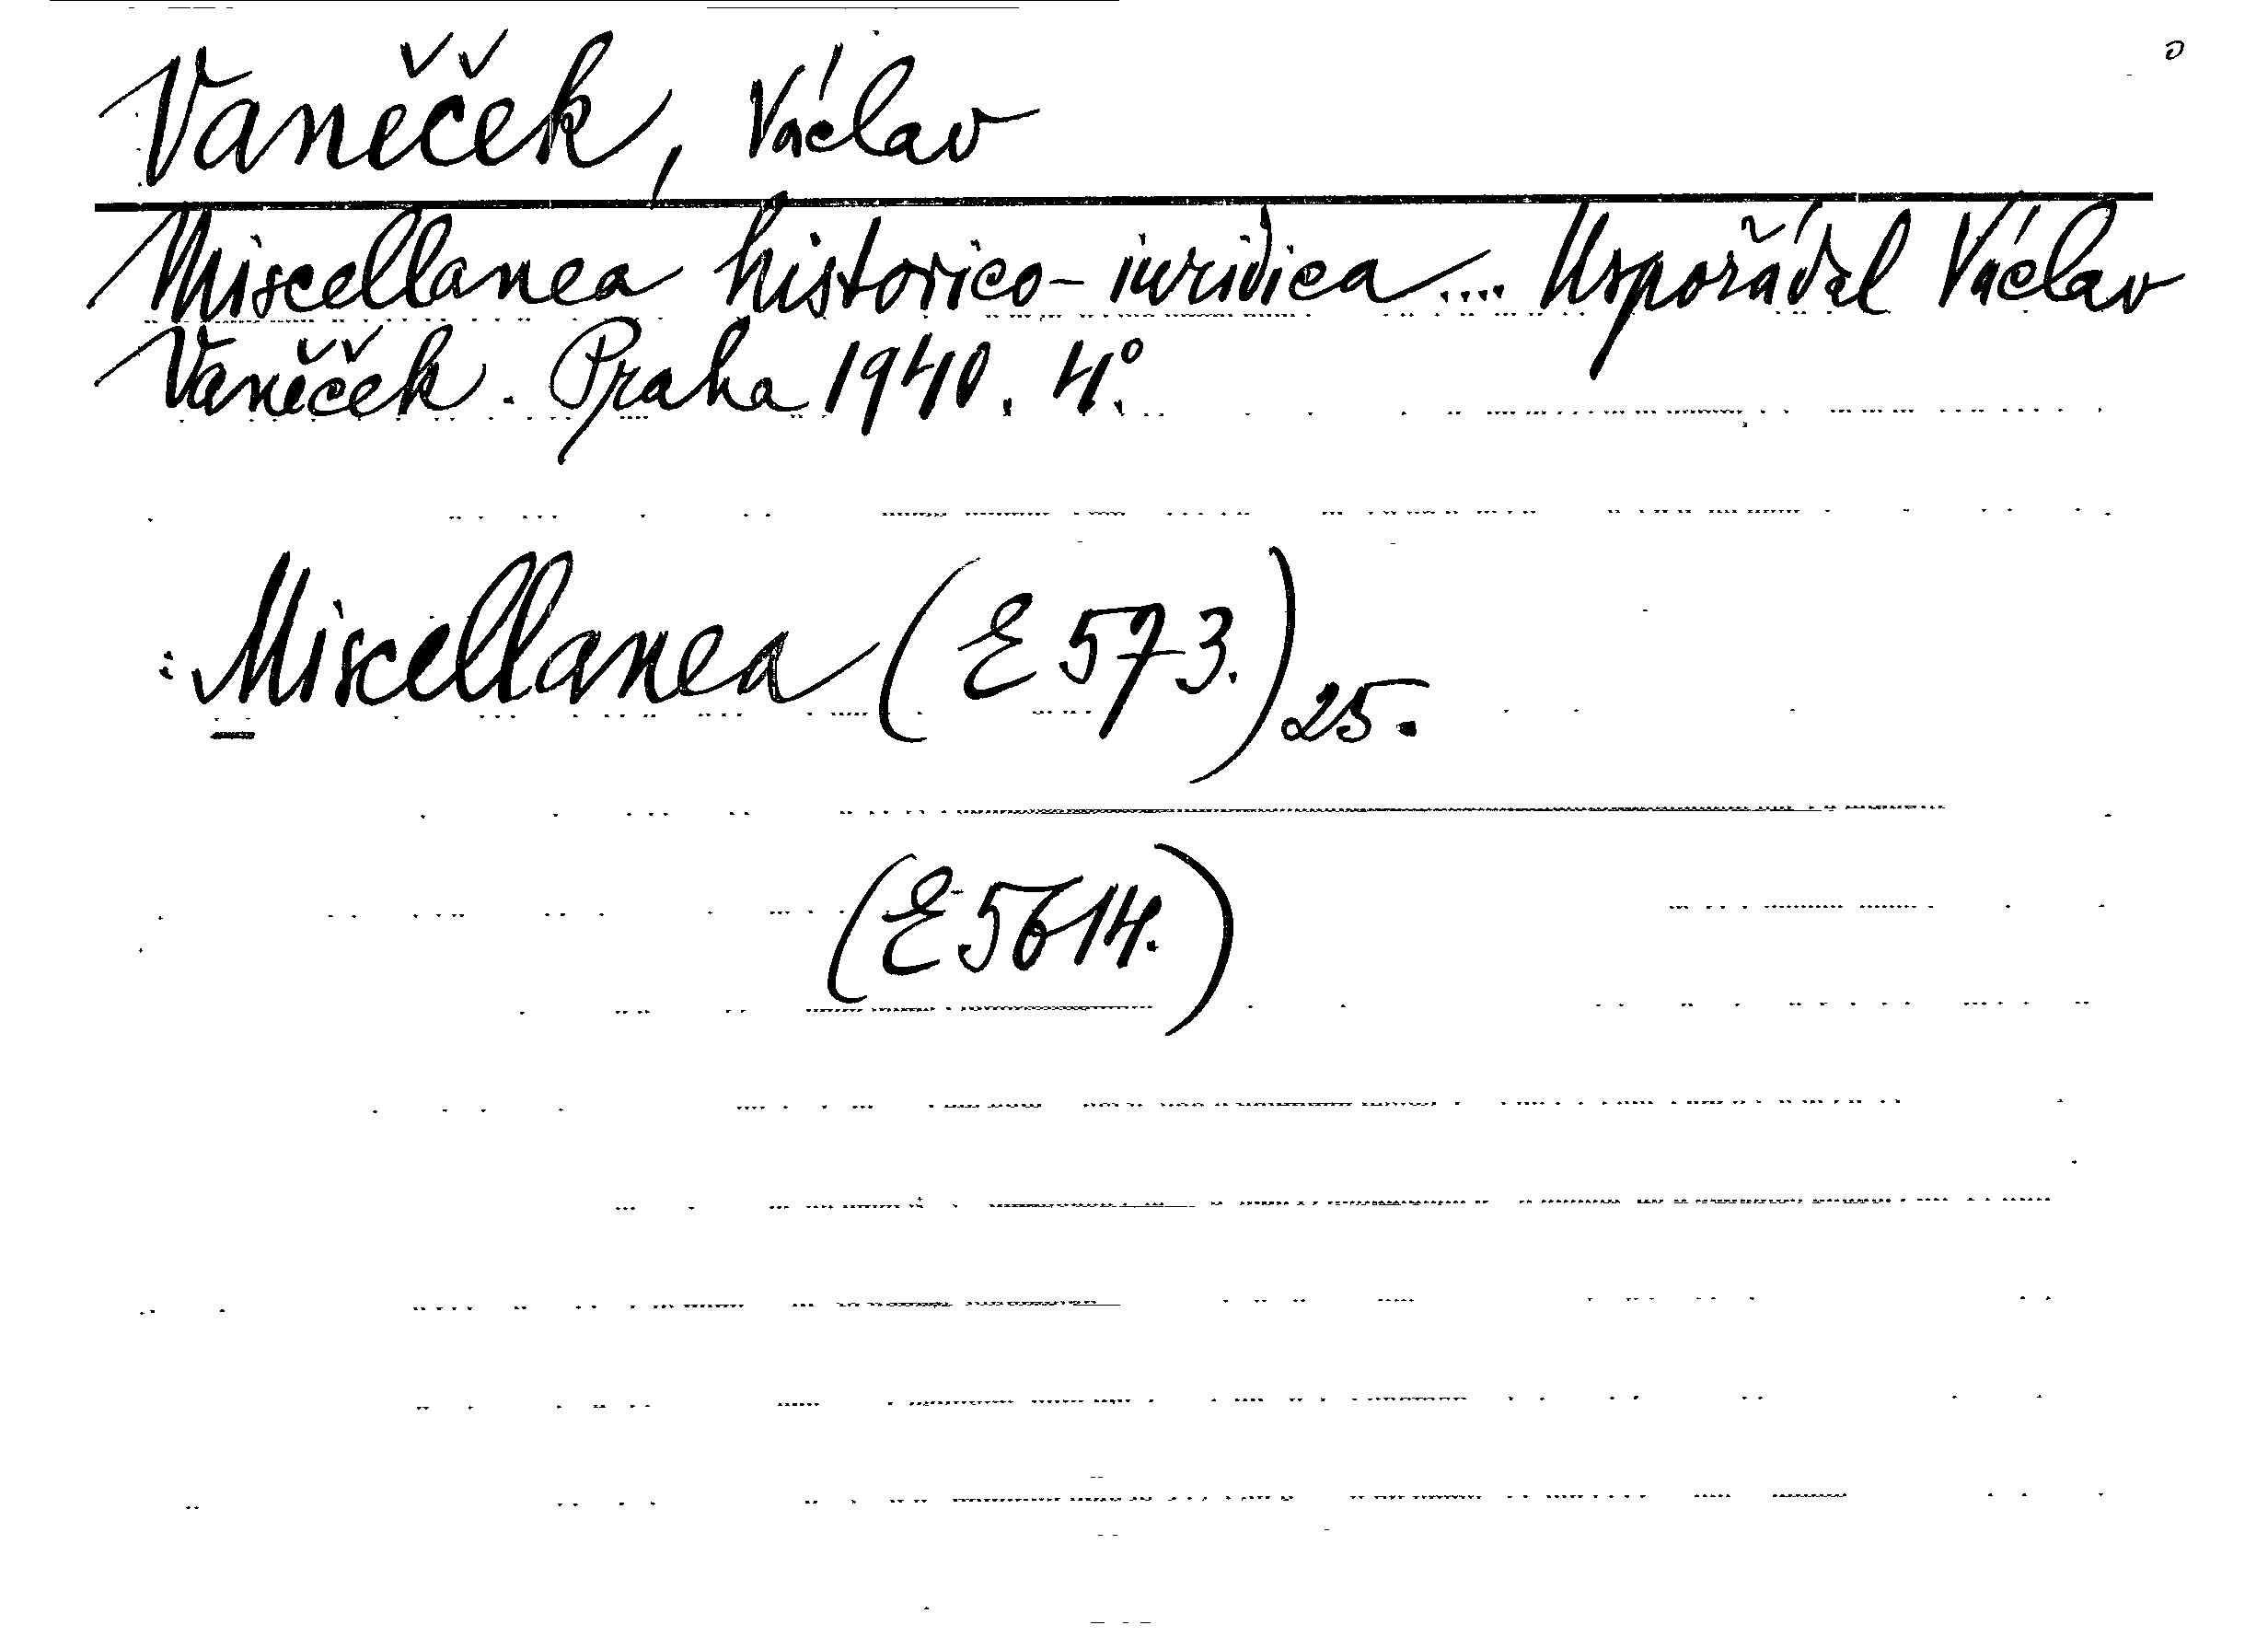 Vaněček, Václav
Miscellanea historico-iuridica.... Uspořádal Václav
Vaněček. Praha 1940. 4°.
: Miscellanea (E 573.) 25.
(E 5614.)